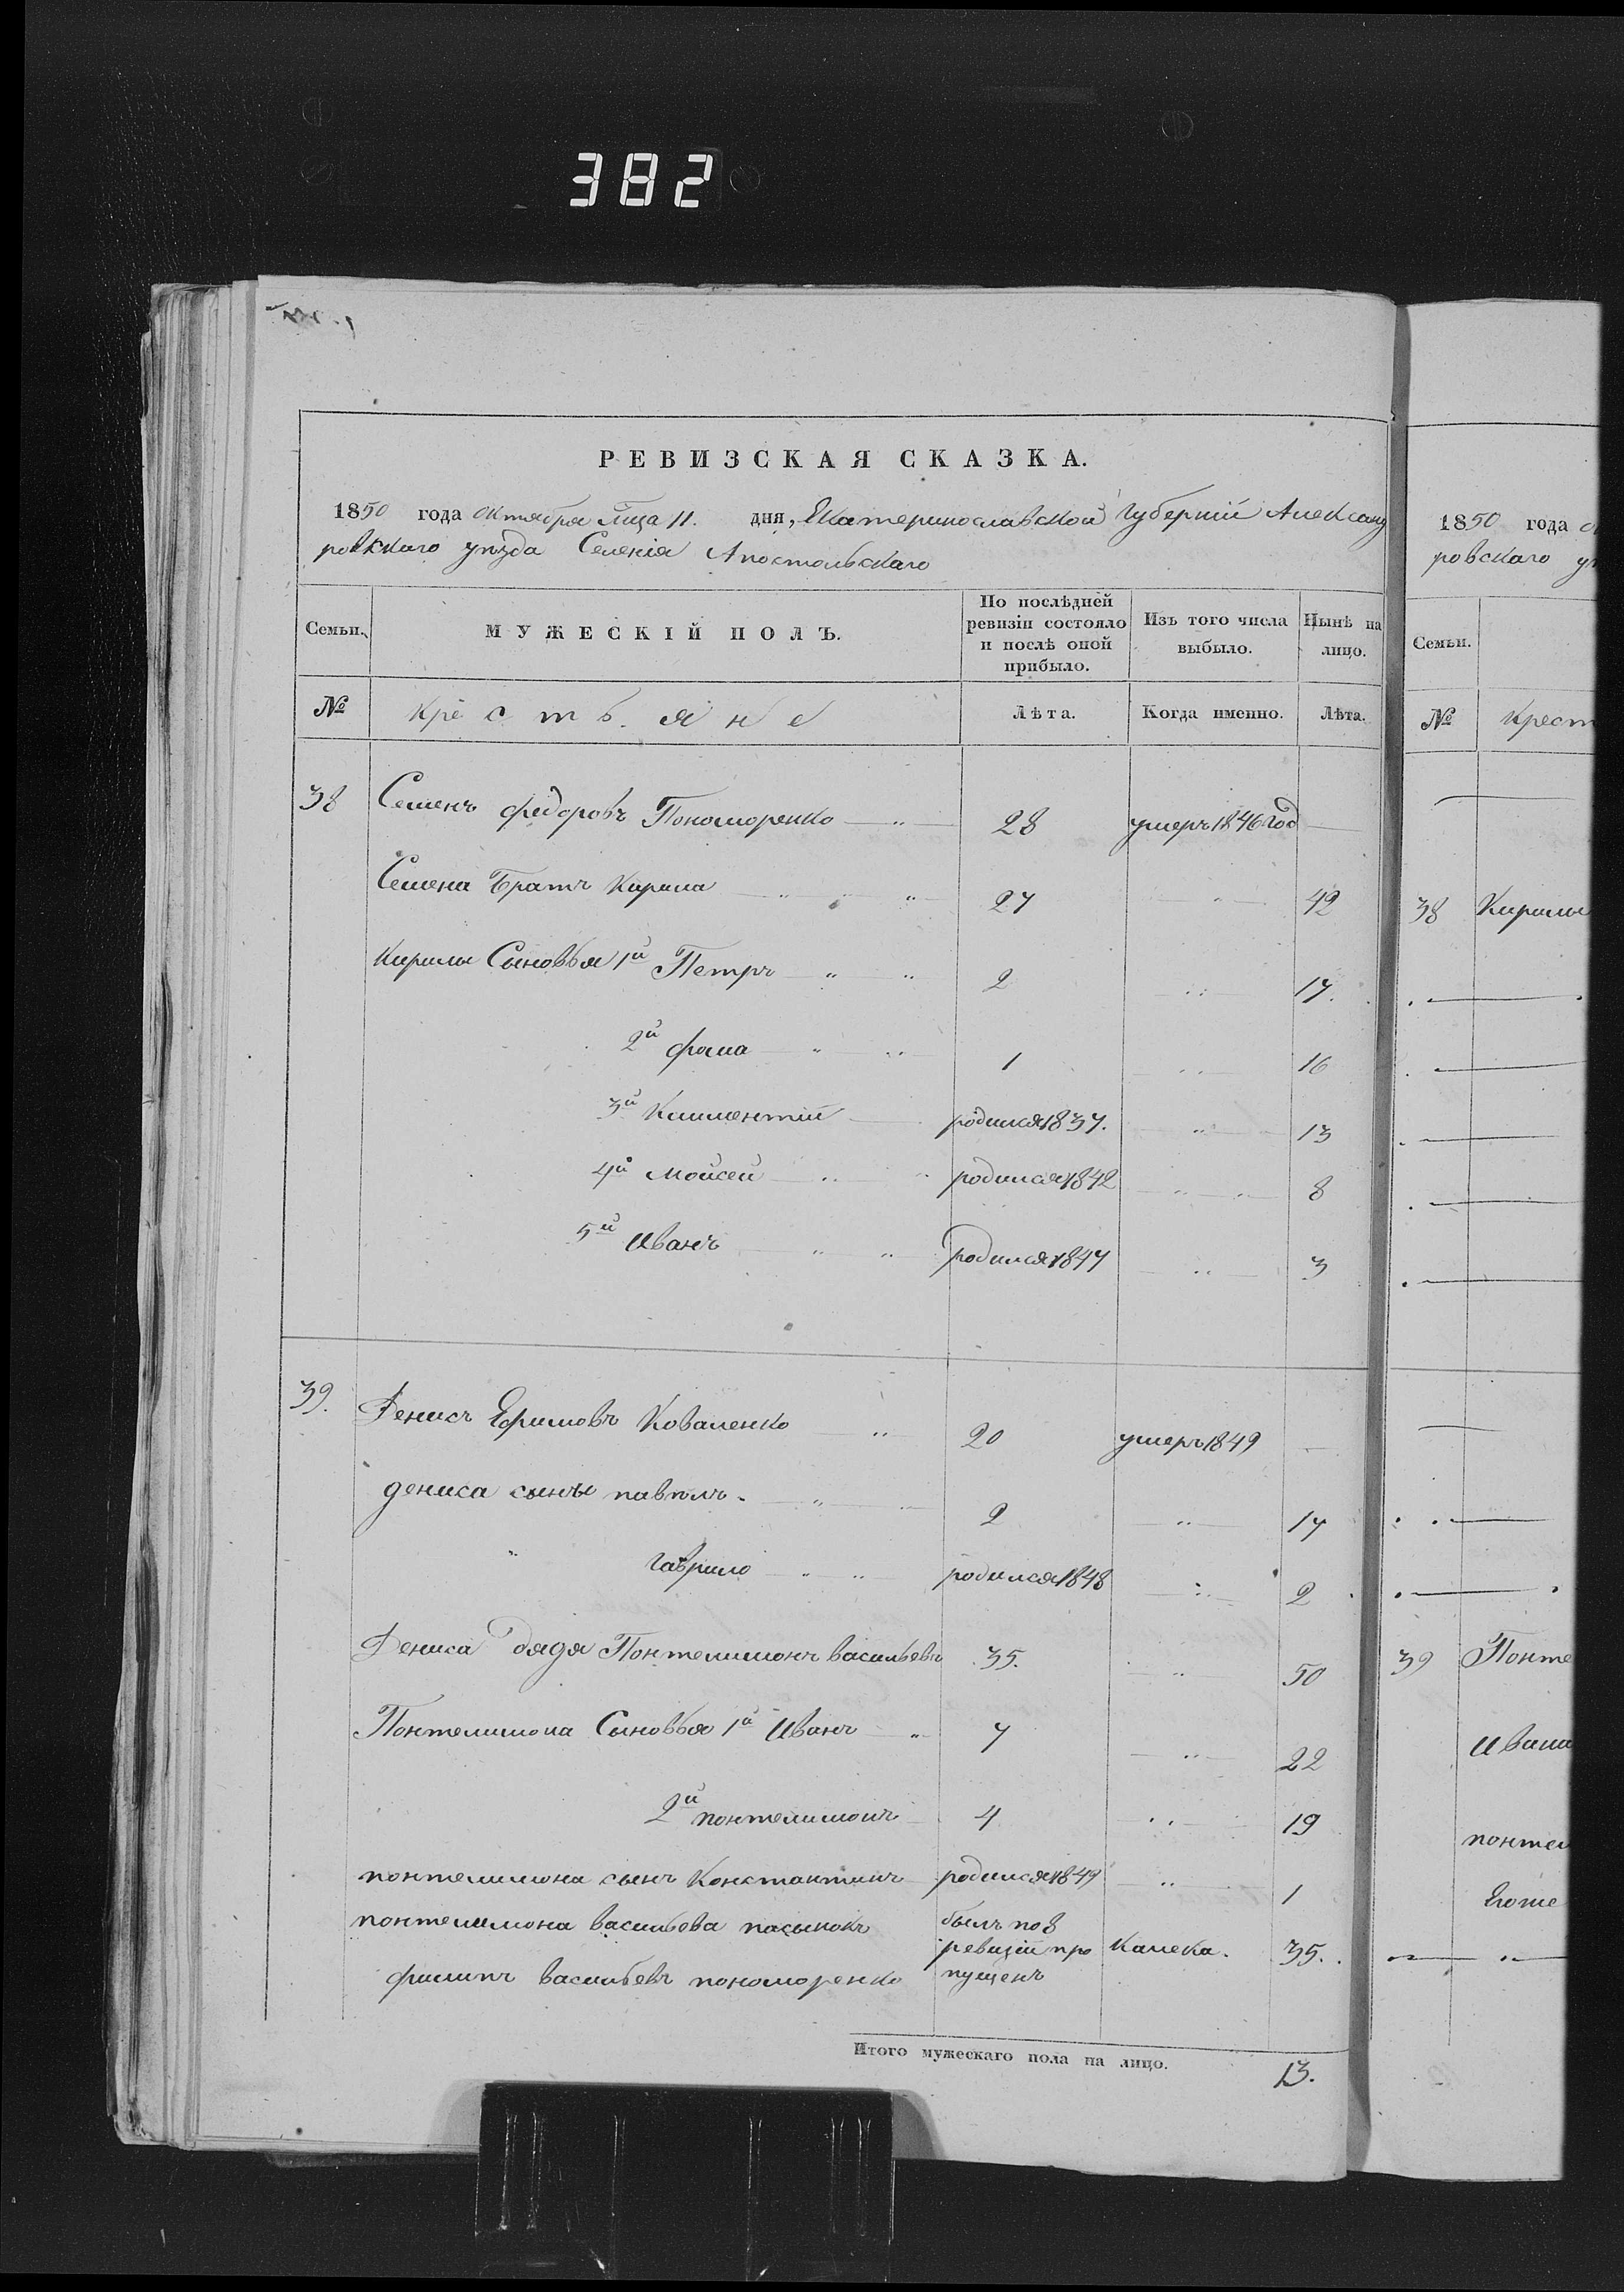 382
РЕВИЗСКАЯ СКАЗКА.
1850 года октября мца 11. дня, Екатеринославской Губерніи Александ
ровскаго уѣзда Селенія Апостольскаго
Семьи. МУЖЕСКІЙ ПОЛЪ. По послѣдней ревизіи состояло и послѣ оной прибыло. Изъ того числа выбыло. Нынѣ на лицо.
№ Крестьяне Лѣта. Когда именно. Лѣта.
38 Семенъ Федоровъ Пономоренко 28 умеръ 1846 год
Семена Братъ Кирила 27 42
Кирилы Сыновья 1й Петръ 2 17.
2й Фома 1 16
3й Климентий родился 1837. 13
4й Мойсей родился 1842 8
5й Иванъ родился 1847 3
39. Денисъ Ефимовъ Коваленко 20 умеръ 1849
дениса сыны павполъ 2 17
Гаврило родился 1848 2
Дениса дядя Понтелимонъ васильевъ 35. 50
Понтелимона Сыновья 1й Иванъ 7 22
2й понтелимонъ 4 19
понтелимона сынъ Константинъ родился 1849 1
понтелимона васильова пасынокъ былъ по 8
филипъ васильевъ пономоренко ревизіи про пущенъ Калека. 35.
Итого мужескаго пола на лицо. 13.
1850 года
ровскаго
Семьи.
№ Крест
38 Кирилы
39 Понте
Ивана
понтел
Егоме